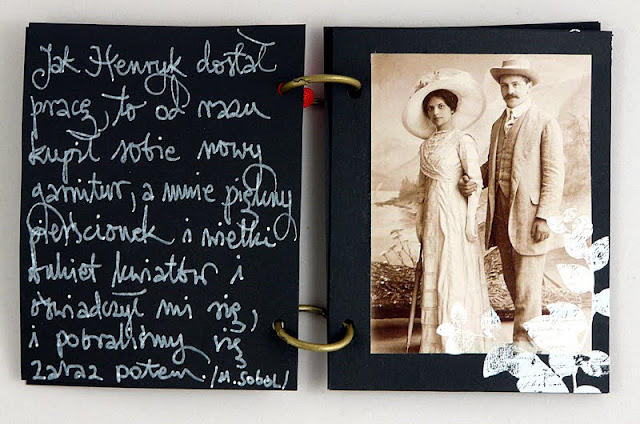 Jak Henryk dostał
pracę, to od razu
kupił sobie nowy
garnitur, a mnie piękny
pierścionek i wielki
bukiet kwiatów i
oświadczył mi się,
i pobraliśmy się
zaraz potem. /M. Sobol/